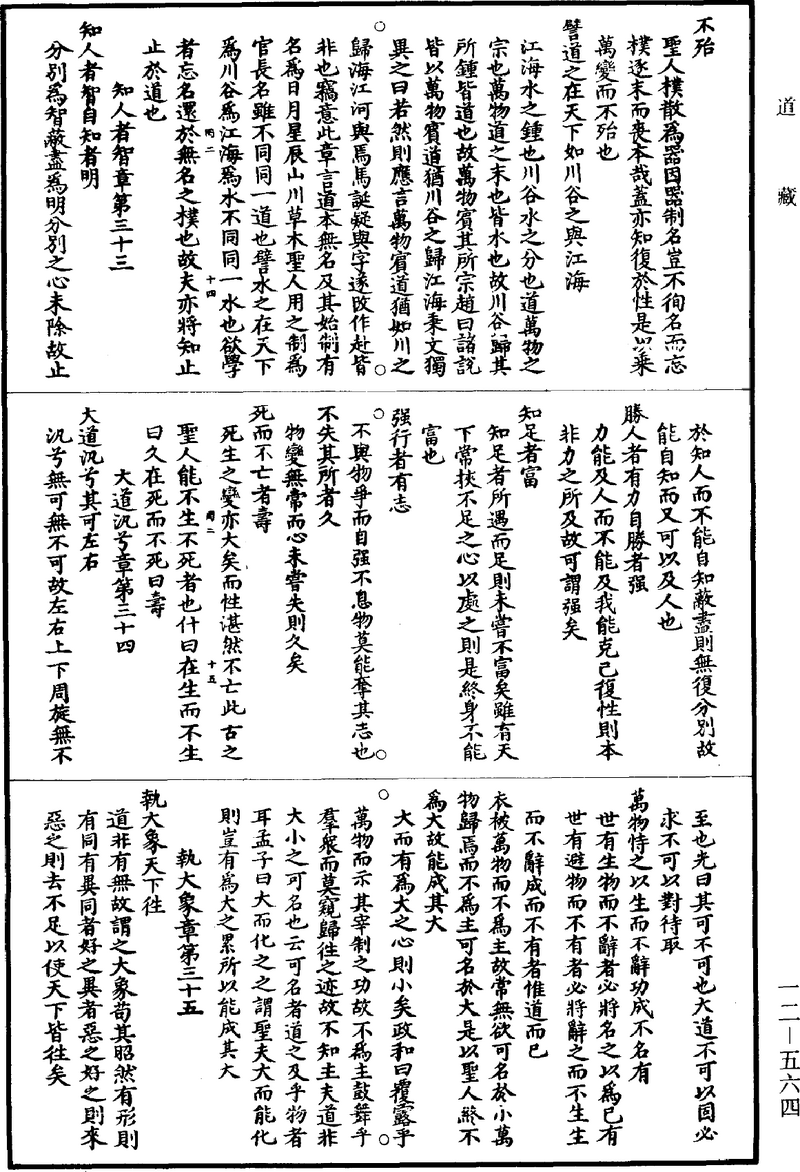 道藏
不殆
聖人樸散為器因器制名豈不徇名而忘
樸逐末而喪本哉蓋亦知復於性是以乗
萬變而不殆也
譬道之在天下如川谷之與江海
江海水之鍾也川谷水之分也道萬物之
宗也萬物道之末也皆水也故川谷歸其
所鍾皆道也故萬物賓其所宗趙曰諸說
皆以萬物賓道猶川谷之歸江海秉文獨
異之曰若然則應言萬物賓道猶如川之
歸海江河與焉馬誕疑與字遂改作赴皆
非也竊意此章言道本無名及其始制有
名為日月星辰山川草木聖人用之制為
官長名雖不同同一道也譬水之在天下
為川谷為江海為水不同同一水也欲學
者忘名還於無名之樸也故夫亦將知止
止於道也
知人者智章第三十三
知人者智自知者明
分別為智蔽盡為明分別之心未除故止
於知人而不能自知蔽盡則無復分別故
能自知而又可以及人也
勝人者有力自勝者强
力能及人而不能及我能克己復性則本
非力之所及故可謂强矣
知足者富
知足者所遇而足則未嘗不富矣雖有天
下常挾不足之心以處之則是終身不能
富也
强行者有志
不與物爭而自强不息物莫能奪其志也
不失其所者久
物變無常而心未嘗失則久矣
死而不亡者壽
死生之變亦大矣而性湛然不亡此古之
聖人能不生不死者也什曰在生而不生
曰久在死而不死曰壽
大道汎兮章第三十四
大道汎兮其可左右
汎兮無可無不可故左右上下周旋無不
至也光曰其可不可也大道不可以固必
求不可以對待取
萬物恃之以生而不辭功成不名有
世有生物而不辭者必將名之以為已有
世有避物而不有者必將辭之而不生生
而不辭成而不有者惟道而已
衣被萬物而不為主故常無欲可名於小萬
物歸焉而不為主可名於大是以聖人終不
為大故能成其大
大而有為大之心則小矣政和曰覆露乎
萬物而示其宰制之功故不為主鼓舞乎
羣衆而莫窺歸往之迹故不知主夫道非
大小之可名也云可名者道之及乎物者
耳孟子曰大而化之之謂聖夫大而能化
則豈有為大之累所以能成其大
執大象章第三十五
執大象天下往
道非有無故謂之大象苟其昭然有形則
有同有異同者好之異者惡之好之則來
惡之則去不足以使天下皆往矣
一二—五六四